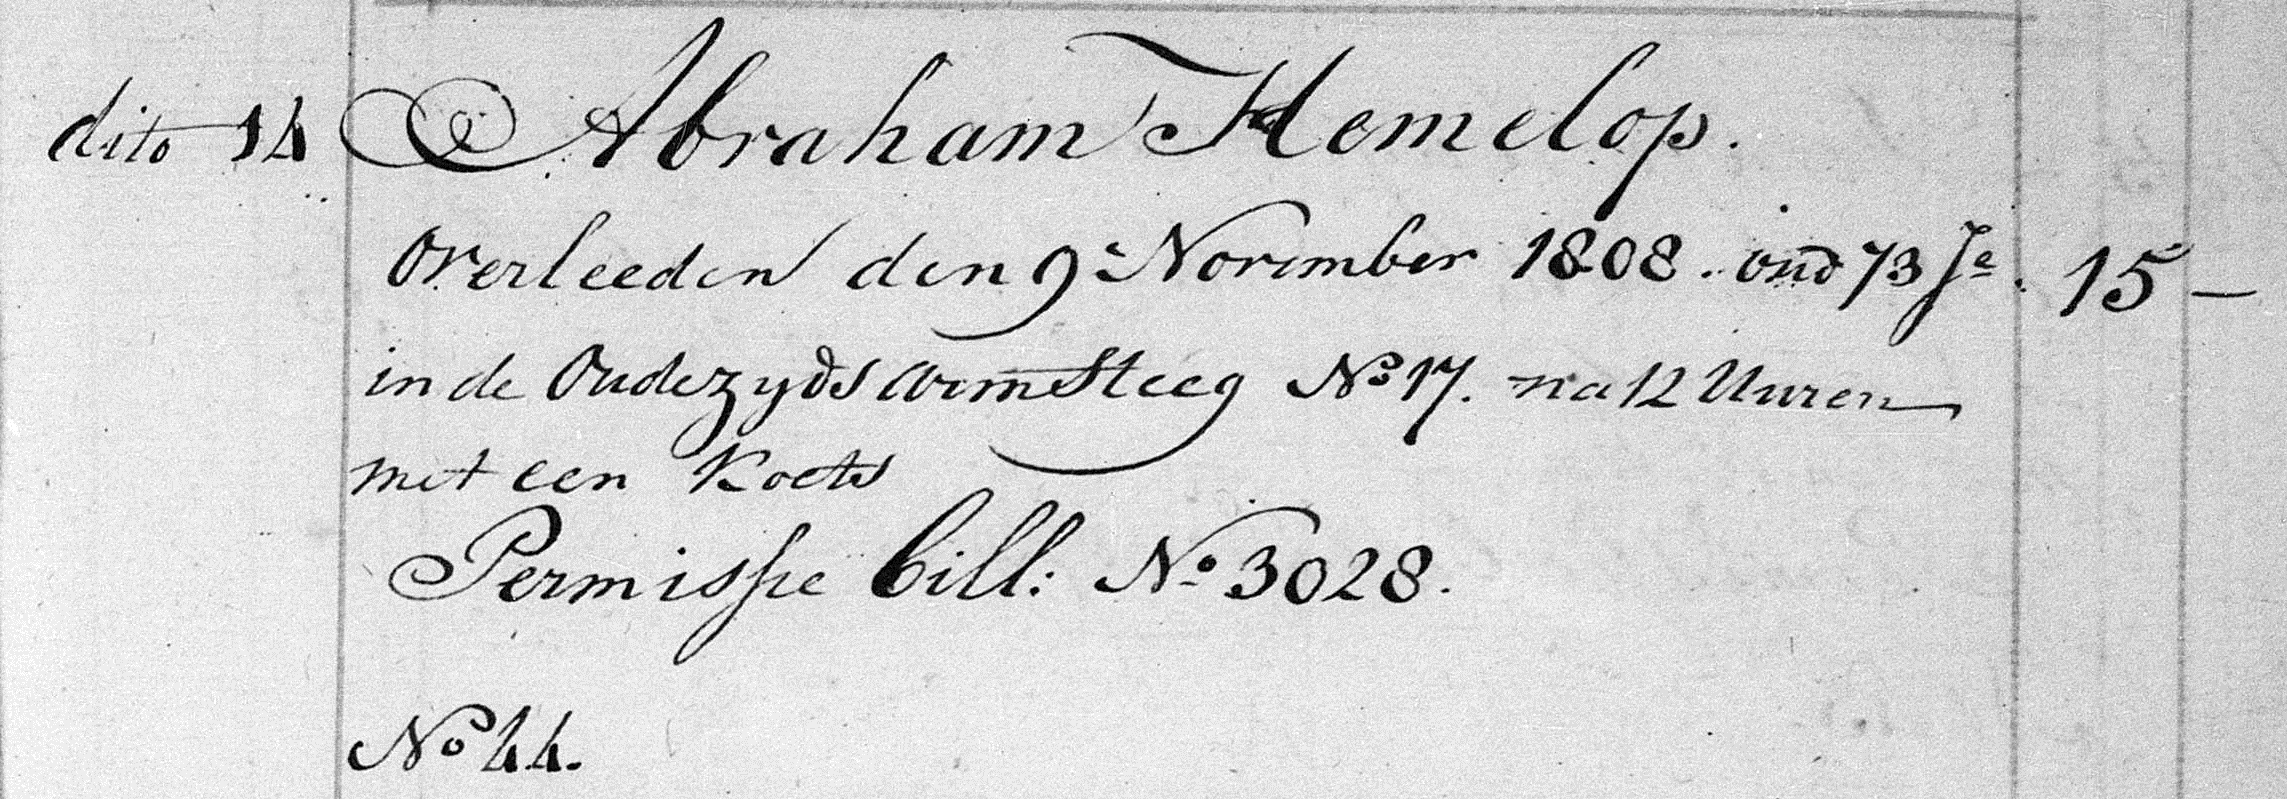 dito 14 Abraham Hemelop.
Overleeden den 9 November 1808. oud 73 Je. 15 —
in de Oudezyds armSteeg No 17. na 12 Uuren
met een Koets
Permissie bill: No 3028.
No 44.